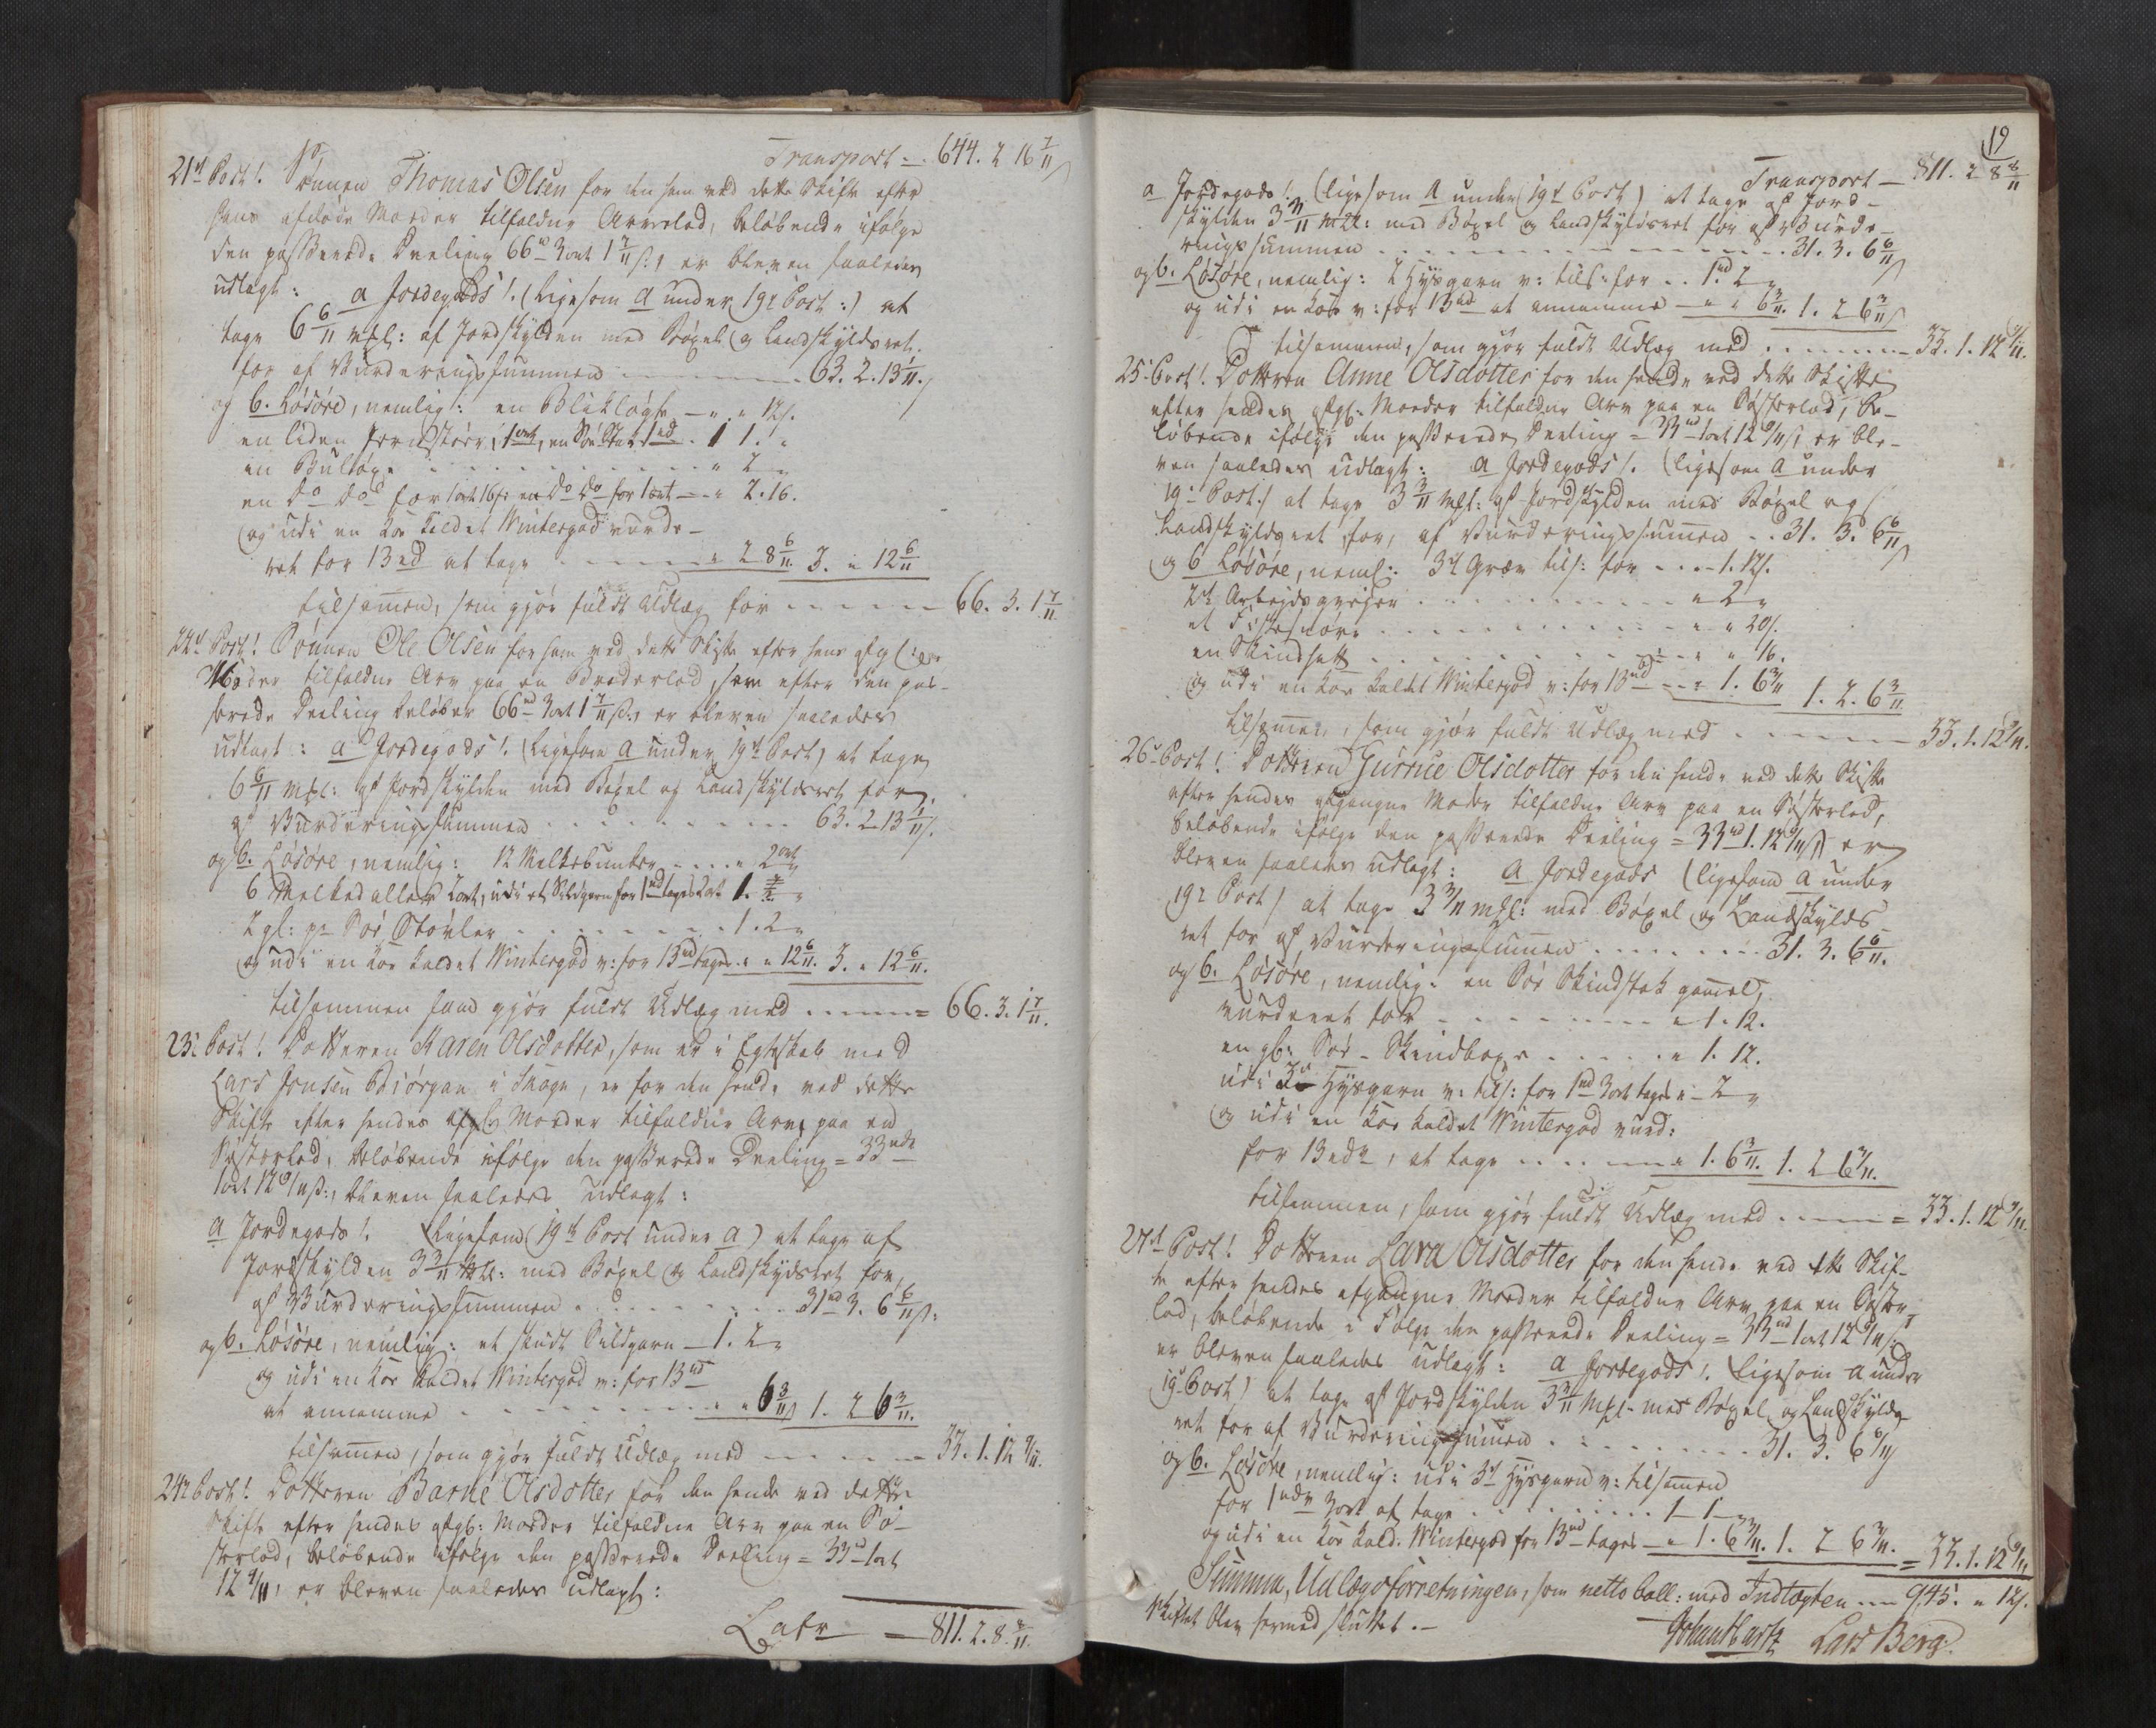 Transport - 644. 2 16 7/11 ß
21de Post!. Sønnen Thomas Olsen for den ham ved dette Skifte efter
hans afdøde Moder tilfaldne Arvelod, beløbende ifølge
den passerede Deeling 66 rd 3 ort 1 7/11 ß, er bleven saaledes
udlagt: a Jordegods!. (ligesom a under 19de Post:) at
tage 6 6/11 mkl: af Jordskylden med Bøxel og Landskyldsret,
for af Vurderingssummen - 63. 2. 13 1/11 ß
og b. Løsøre, nemlig: en Blikløgte - " " 12 ß.
en liden Jernstör, 1 ort, en Sör Stak 1 rd. 1 1. "
en Buløxe " 2 "
en do do for 1 ort 16 ß: en do do for 1 ort - " 2. 16.
og udi en Koe kaldet Wintergod vurde-
ret for 13 rd at tage - " 2 8 6/11. 3. " 12 6/11
tilsammen, som gjør fuldt Udlæg for - 66. 3. 1 7/11
22de Post! Sønnen Ole Olsen for ham ved dette Skifte efter hans afg.
Moder tilfaldne Arv paa en Broderlod, som efter den pas-
serede Deeling beløber 66 rd 3 ort 1 7/11 ß, er bleven saaledes
udlagt: a Jordegods!. (ligesom a under 19de Post) at tage
6 6/11 mkl: af Jordskylden med Bøxel og Landskyldsret for
af Vurderingssummen - 63. 2 13 1/11 ß.
og b. Løsøre, nemlig: 12 Melkebunker - " 2 ort "
6 Melkedaller 2 ort, udi et Sildgarn for 1 rd tages 2 ort 1. "
2 gl: pr Sör Støvler - 1. 2 "
og udi en Koe kaldet Wintergod v: for 13 rd tages " " 12 6/11. 3. " 12 6/11.
tilsammen som gjør fuldt Udlæg med = 66. 3. 1 7/11.
23de Post!. Datteren Karen Olsdotter, som er i Egteskab med
Lars Jensen Biörgan i Skage, er for den hende ved dette
Skifte efter hendes afg: Moder tilfaldne Arv paa en
Søsterlod, beløbende ifølge den passerede Deeling = 33 rd
1 ort 12 9/11 ß:, bleven saaledes udlagt:
a Jordegods!. (ligesom 19de Post under a) at tage af
Jordskylden 3 3/11 mkl: med Bøxel og Landskyldsret for,
af Vurderingssummen - 31 rd 3. 6 6/11 ß:
og b. Løsøre, nemlig: et skudt Sildgarn - 1. 2 "
og udi en Koe kaldet Wintergod v: for 13 rd
at annamme - " " 6 3/11 ß 1. 2 6 3/11.
tilsammen, som gjør fuldt Udlæg med - 33. 1. 12 9/11.
24de Post!. Datteren Barne Olsdotter for den hende ved dette
Skifte efter hendes afg: Moder tilfaldne Arv paa en Sø-
sterlod, beløbende ifølge den passerede Deeling = 33 rd 1 ort
12 9/11, er bleven saaledes udlagt:
Latr - 811. 2. 8. 8/11.
19
Transport - 811. 2 8 8/11
a Jordegods!. (ligesom a under 19de Post) at tage af Jord-
skylden 3 3/11 mkl: med Bøxel og Landskyldsret for af Vurde-
ringssummen - 31. 3. 6 6/11 ß
og b. Løsøre, nemlig: 2 Hysgarn v: tils: for - 1 rd. 2 "
og udi en Koe v: for 13 rd at annamme - " " 6 3/11. 1. 2 6 3/11 ß
tilsammen, som gjør fuldt Udlæg med - 33. 1. 12 9/11.
25de Post!. Datteren Anne Olsdotter for den hende ved dette Skifte
efter hendes afg: Moder tilfaldne Arv paa en Søsterlod, be-
løbende ifølge den passerede Deeling = 33 rd 1 ort 12 9/11 ß, er ble-
ven saaledes udlagt: a Jordegods!. (ligesom a under
19de Post) at tage 3 3/11 mkl: af Jordskylden med Bøxel og
Landskyldsret for, af Vurderingssummen - 31. 3. 6 6/11 ß
og b Løsøre, neml: 3de Græv tils: for - 1. 12 ß.
2de Arbejdsgrejer - " 2 "
et Fiskesnøre - " " 20 ß.
en Skindhatt - " " 16.
og udi en Koe kaldet Wintergod v: for 13 rd - " 1. 6 3/11 1. 2. 6 3/11
tilsammen, som gjør fuldt Udlæg med - 33. 1. 12 9/11.
26de Post!. Datteren Gurine Olsdotter for den hende ved dette Skifte
efter hendes afgangne Moder tilfaldne Arv paa en Søsterlod,
beløbende ifølge den passerede Deeling = 33 rd 1. 12 9/11 ß er
bleven saaledes udlagt: a Jordegods (ligesom a under
19de Post) at tage 3 3/11 mkl: med Bøxel og Landskylds-
ret for af Vurderingssummen - 31. 3. 6 6/11.
og b. Løsøre, nemlig: en Sör Skindstak gamel,
vurderet for - " 1. 12.
en gl: Sör - Skindboxe - " 1. 12.
udi 3de Hysgarn v: tils: for 1 rd 3 ort tages " - 2 "
og udi en Koe kaldet Wintergod vurd:
for 13 rdr, at tage - " 1. 6 3/11. 1. 2 6 3/11.
tilsammen, som gjør fuldt Udlæg med = 33. 1. 12 9/11.
27de Post! Datteren Lava Olsdotter for den hende ved dette Skif-
te efter hendes afgangne Moder tilfaldne Arv paa en Søster-
lod, beløbende i Følge den passerede Deeling = 33 rd 1 ort 12 9/11 ß
er bleven saaledes udlagt: a Jordegods!. (ligesom a under
19de Post) at tage af Jordskylden 3 3/11 mkl. med Bøxel og Landskylds-
ret for af Vurderingssummen - 31. 3. 6 6/11
og b. Løsøre, nemlig: udi 3de Hysgarn v: tilsammen
for 1 rdr 3 ort at tage - 1 - 1 -
og udi en Koe kald. Wintergod for 13 rd tages - " 1. 6 3/11. 1. 2 6 3/11. = 33. 1. 12 9/11
Summa, Udlægsforretningen, som netto ball: med Indtægten - 945. " 12 ß.
Skiftet blev hermed sluttet. -
Lars Berg.